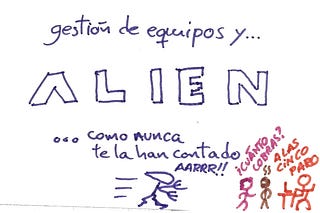 gestión de equipos y...
ALIEN
... como nunca
te la han contado
AARRR!!
¿CUÁNTO
COBRAS?
A LAS
CINCO
PARO